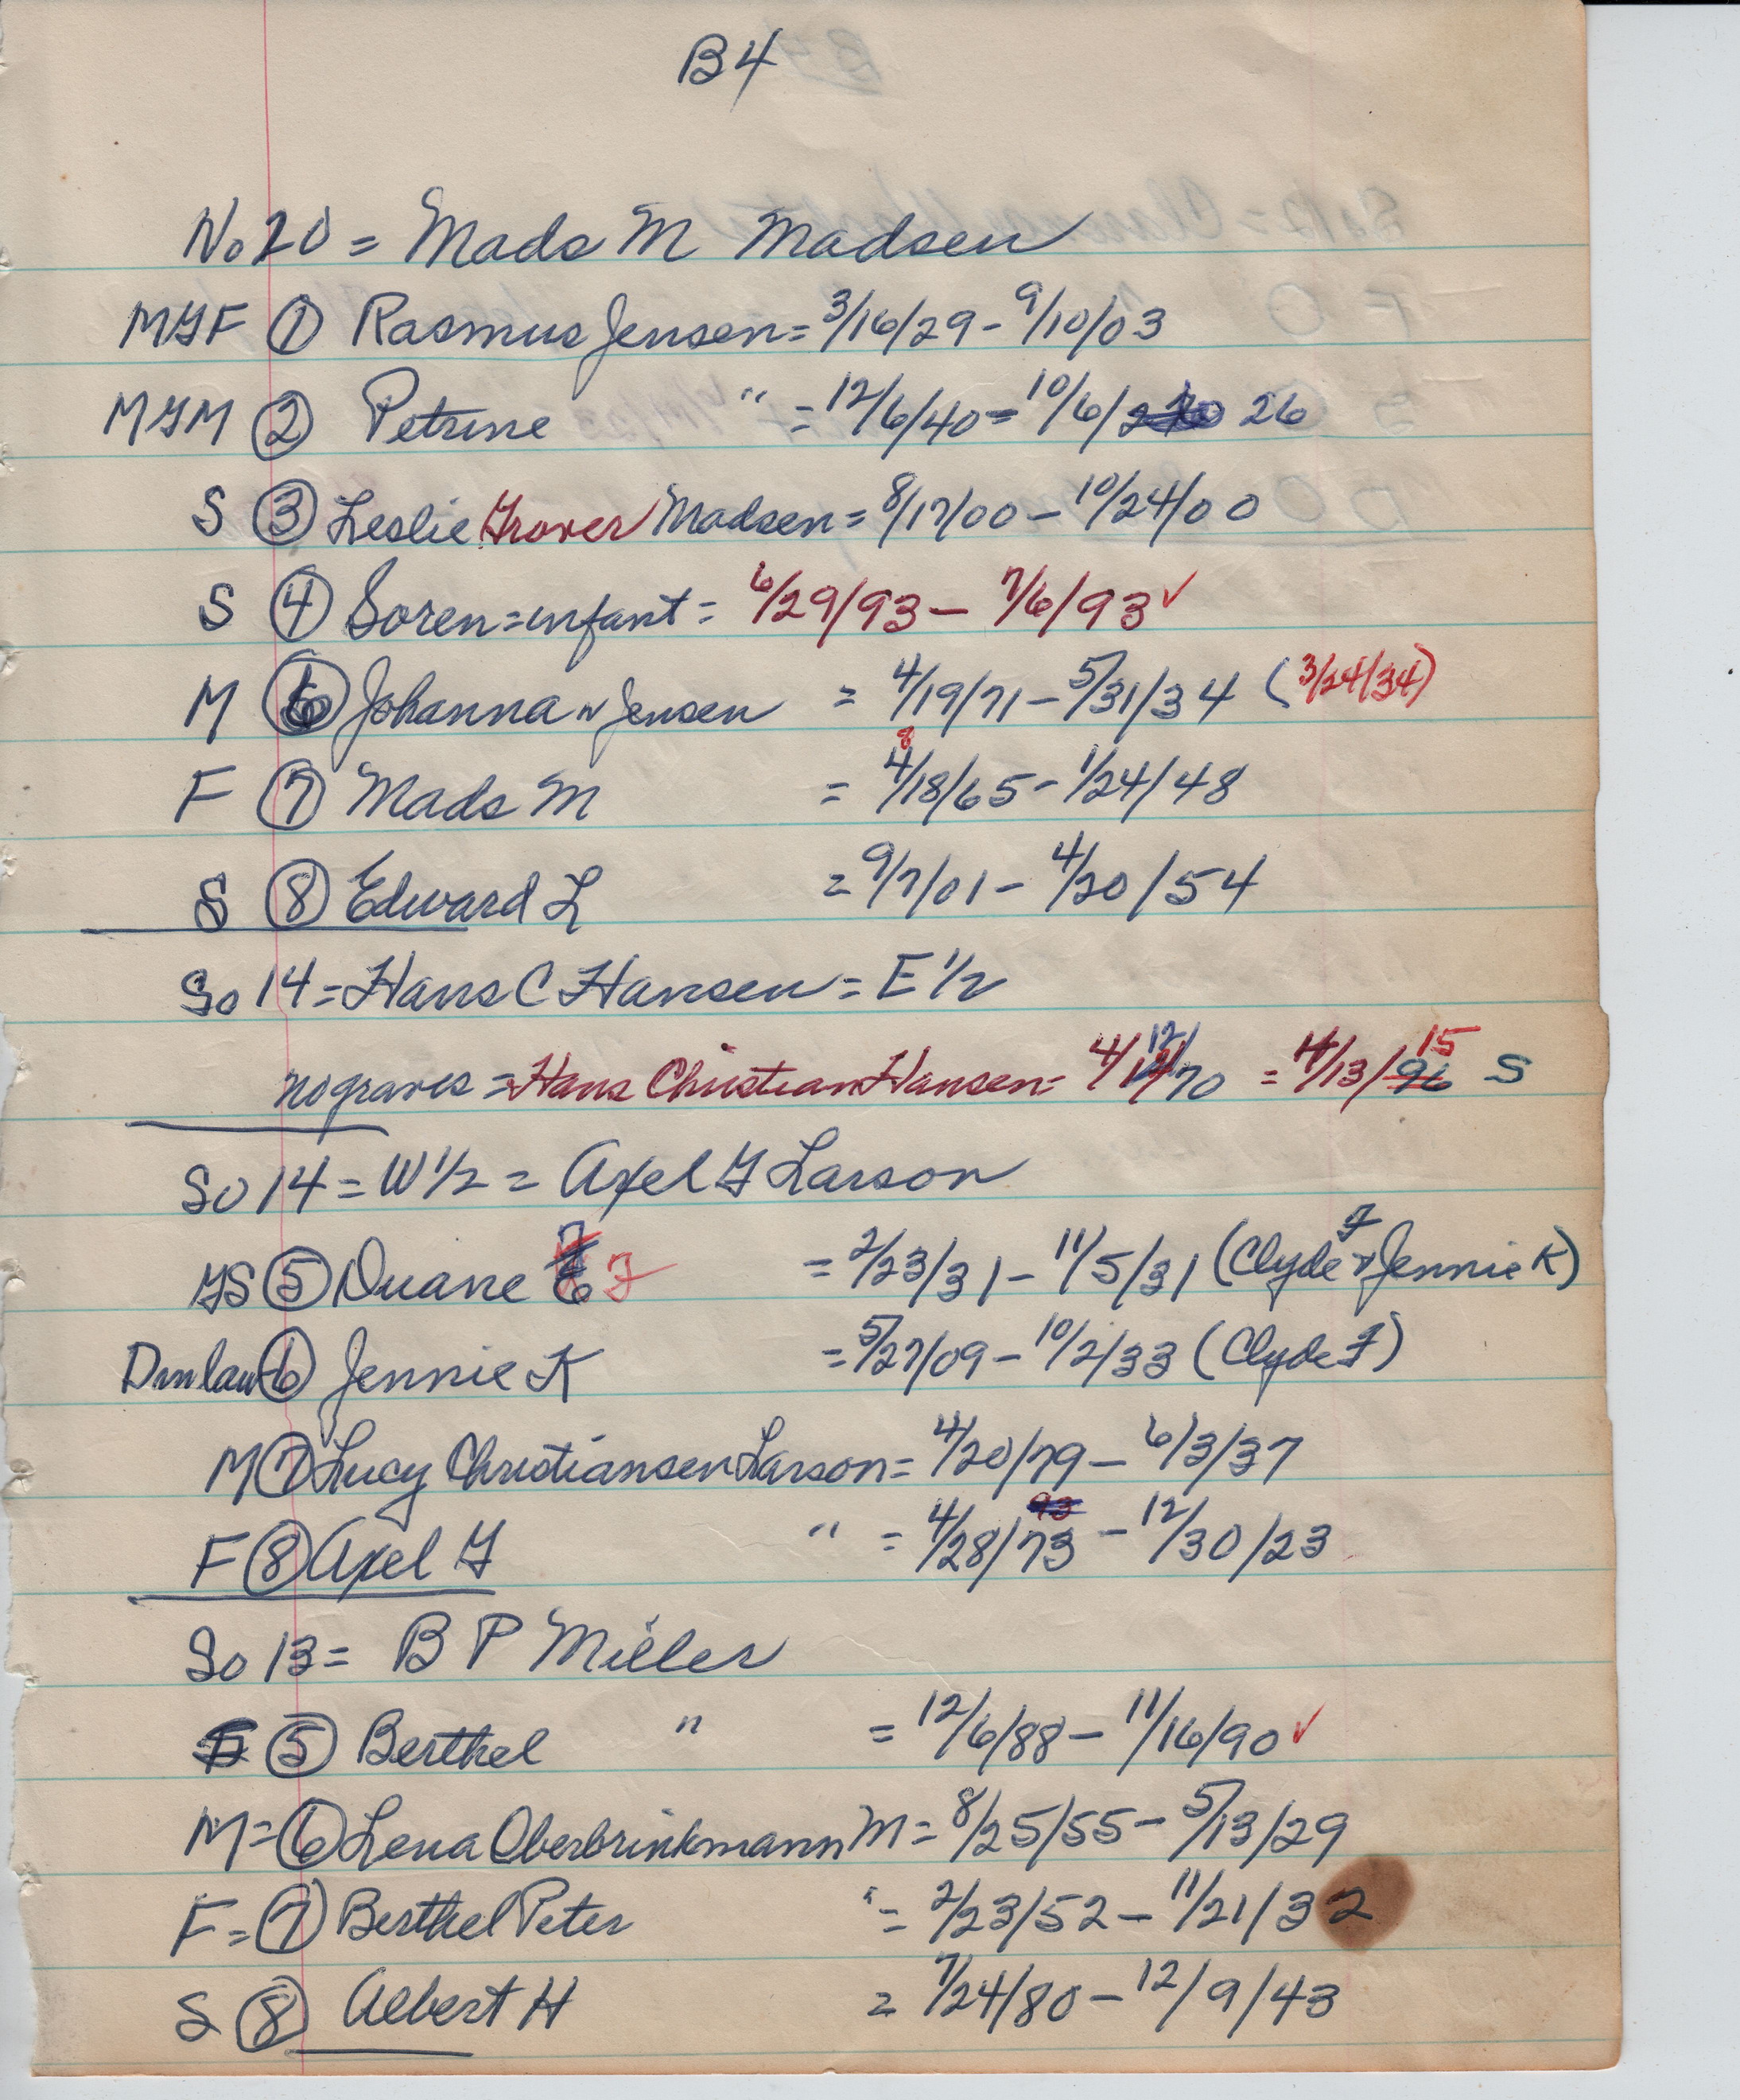 B4
No 20 = Mads M Madsen
MGF ① Rasmus Jensen = 3/16/29 - 9/10/03
MGM ② Petrine " = 12/6/40 = 10/6/ 26
S ③ Leslie Grover Madsen = 8/17/00 - 10/24/00
S ④ Soren = infant = 6/29/93 - 7/6/93 ✓
M ⑥ Johanna n Jensen = 4/19/71 - 5/31/34 (3/24/34)
8
F ⑦ Mads M = 4/18/65 - 1/24/48
S ⑧ Edward L = 9/7/01 - 4/20/54
So 14 = Hans C Hansen = E 1/2
no graves = Hans Christian Hansen = 4/12/70 = 4/13/96 15 S
So 14 = W 1/2 = Axel G Larson
GS ⑤ Duane F = 2/23/31 - 11/5/31 (Clyde F & Jennie K)
Dinlaw ⑥ Jennie K = 5/27/09 - 10/2/33 (Clyde F)
M ⑦ Lucy Christiansen Larson = 4/20/79 - 6/3/37
F ⑧ Axel G " = 4/28/73 - 12/30/23
So 13 = B P Miller
⑤ Berthel " = 12/6/88 - 11/16/90 ✓
M = ⑥ Lena Oberbrinkmann M = 8/25/55 - 5/13/29
F = ⑦ Berthel Peter " = 2/23/52 - 11/21/32
S ⑧ Albert H = 7/24/80 - 12/9/43